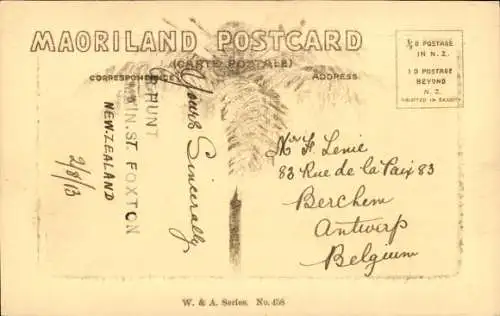 MAORILAND POSTCARD
(CARTE POSTALE)
CORRESPONDENCE
ADDRESS
½D POSTAGE
IN N.Z.
1D POSTAGE
BEYOND
N.Z.
PRINTED IN SAXONY
2/8/13
HUNT
MAIN. ST. FOXTON
NEW-ZEALAND
Yours Sincerely
Mr F Lenie
83 Rue de la Paix 83
Berchem
Antwerp
Belgium
W. & A. Series. No. 458